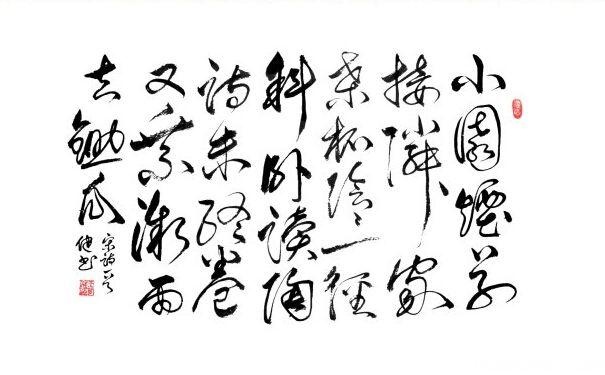 小園煙草
接隣家
桑柘陰々一徑
斜卧讀陶
詩未終卷
又乘微雨
去鋤瓜
宋詩一首
健书